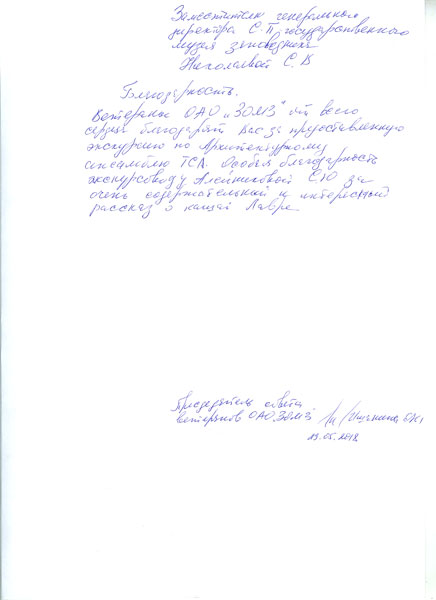 Заместителю генерального
директора С-П государственного
музея заповедника
Николаевой С.В
Благодарность.
Ветераны ОАО "ЗОМЗ" от всего
сердца благодарят Вас за предоставленную
экскурсию по Архитектурному
ансамблю ТСЛ. Особая благодарность
экскурсоводу Алейниковой С.Ю за
очень содержательный и интересный
рассказ о нашей Лавре.
Председатель совета
ветеранов ОАО ЗОМЗ
23.05.2018